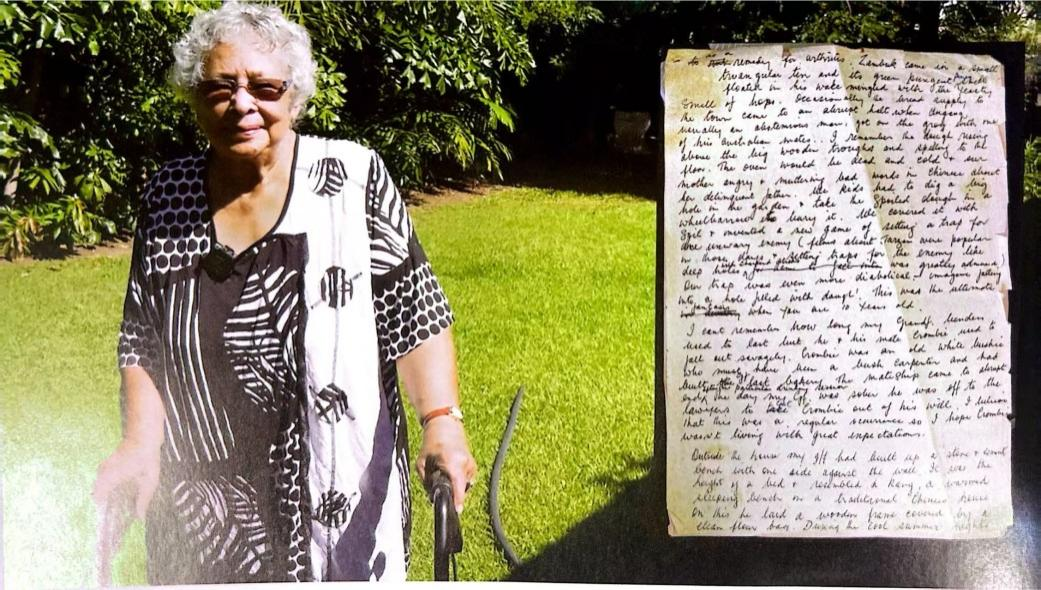 to remedy for arthritis. Zambuk came in a small
triangular tin and its green pungent
floated in his wake mingled with the yeasty
smell of hops. Occasionally the bread supply to
the town came to an abrupt halt when
usually an abstemious man, got on the grog with one
of his australian mates... I remember the dough rising
above the big wooden troughs and spilling to the
floor. The oven would be dead and cold & our
mother angry & muttering bad words in Chinese about
her delinquent father. We kids had to dig a big
hole in the garden & take the spoiled dough in a
wheelbarrow to bury it. We covered it with
soil & invented a new game of setting a trap for
unwary enemy (films about Tarzan were popular
in those days & setting traps for the enemy like
deep holes was greatly admired
Our trap was even more diabolical - imagine falling
into a hole filled with dough! This was the ultimate
when you are 10 years old.
I cant remember how long my Grandf. benders
used to last but he & his mate Crombie used to
fall out savagely. Crombie was an old white bushie
who must have been a bush carpenter and had
built the g/f last The mateship came to abrupt
ends the day my g/f was sober he was off to the
lawyers to take Crombie out of his will. I believe
that this was a regular occurrence so I hope Crombie
wasn't living with great expectations.
Outside the house my g/f had built up a stone & cement
bench with one side against the wall. It was the
height of a bed & resembled a Kang, a warmed
sleeping bench in a traditional Chinese house
on this he laid a wooden frame covered by a
clean flour bag. During the cool summer nights